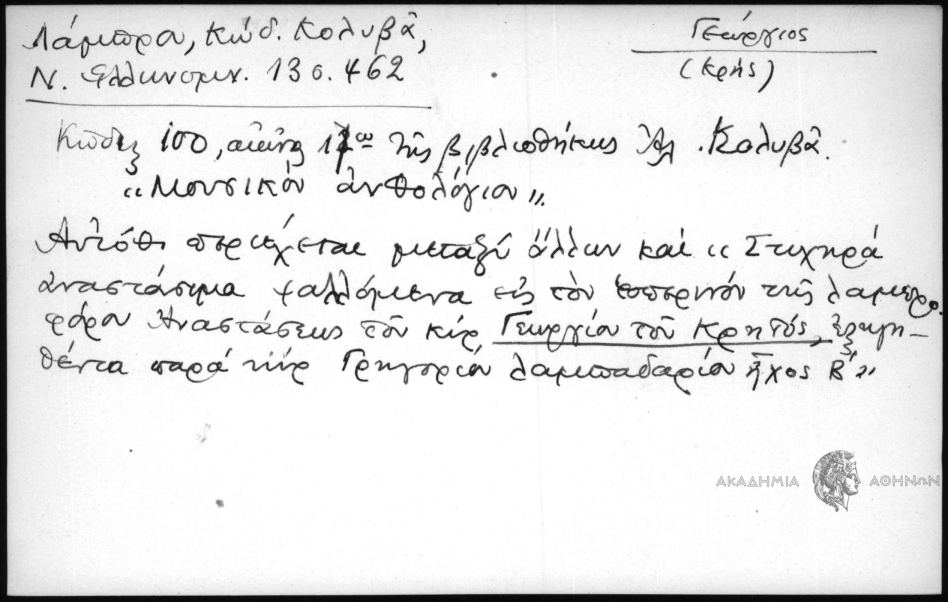 Λάμπρου, Κώδ. Κολυβᾶ,
Ν. Ἑλληνομν. 13 σ. 462
Γεώργιος
(Κρής)
Κῶδιξ 100, αἰῶνος 17ου τῆς βιβλιοθήκης Ἀλ. Κολυβᾶ.
"Μουσικὸν ἀνθολόγιον".
Αὐτόθι περιέχεται μεταξὺ ἄλλων καὶ "Στιχηρά
ἀναστάσιμα ψαλλόμενα εἰς τὸν ἑσπερινὸν τῆς λαμπρο-
φόρου Ἀναστάσεως τοῦ κύρ Γεωργίου τοῦ Κρητός, ἐξηγη-
θέντα παρά κύρ Γρηγορίου λαμπαδαρίου ἦχος Β'"
ΑΚΑΔΗΜΙΑ ΑΘΗΝΩΝ